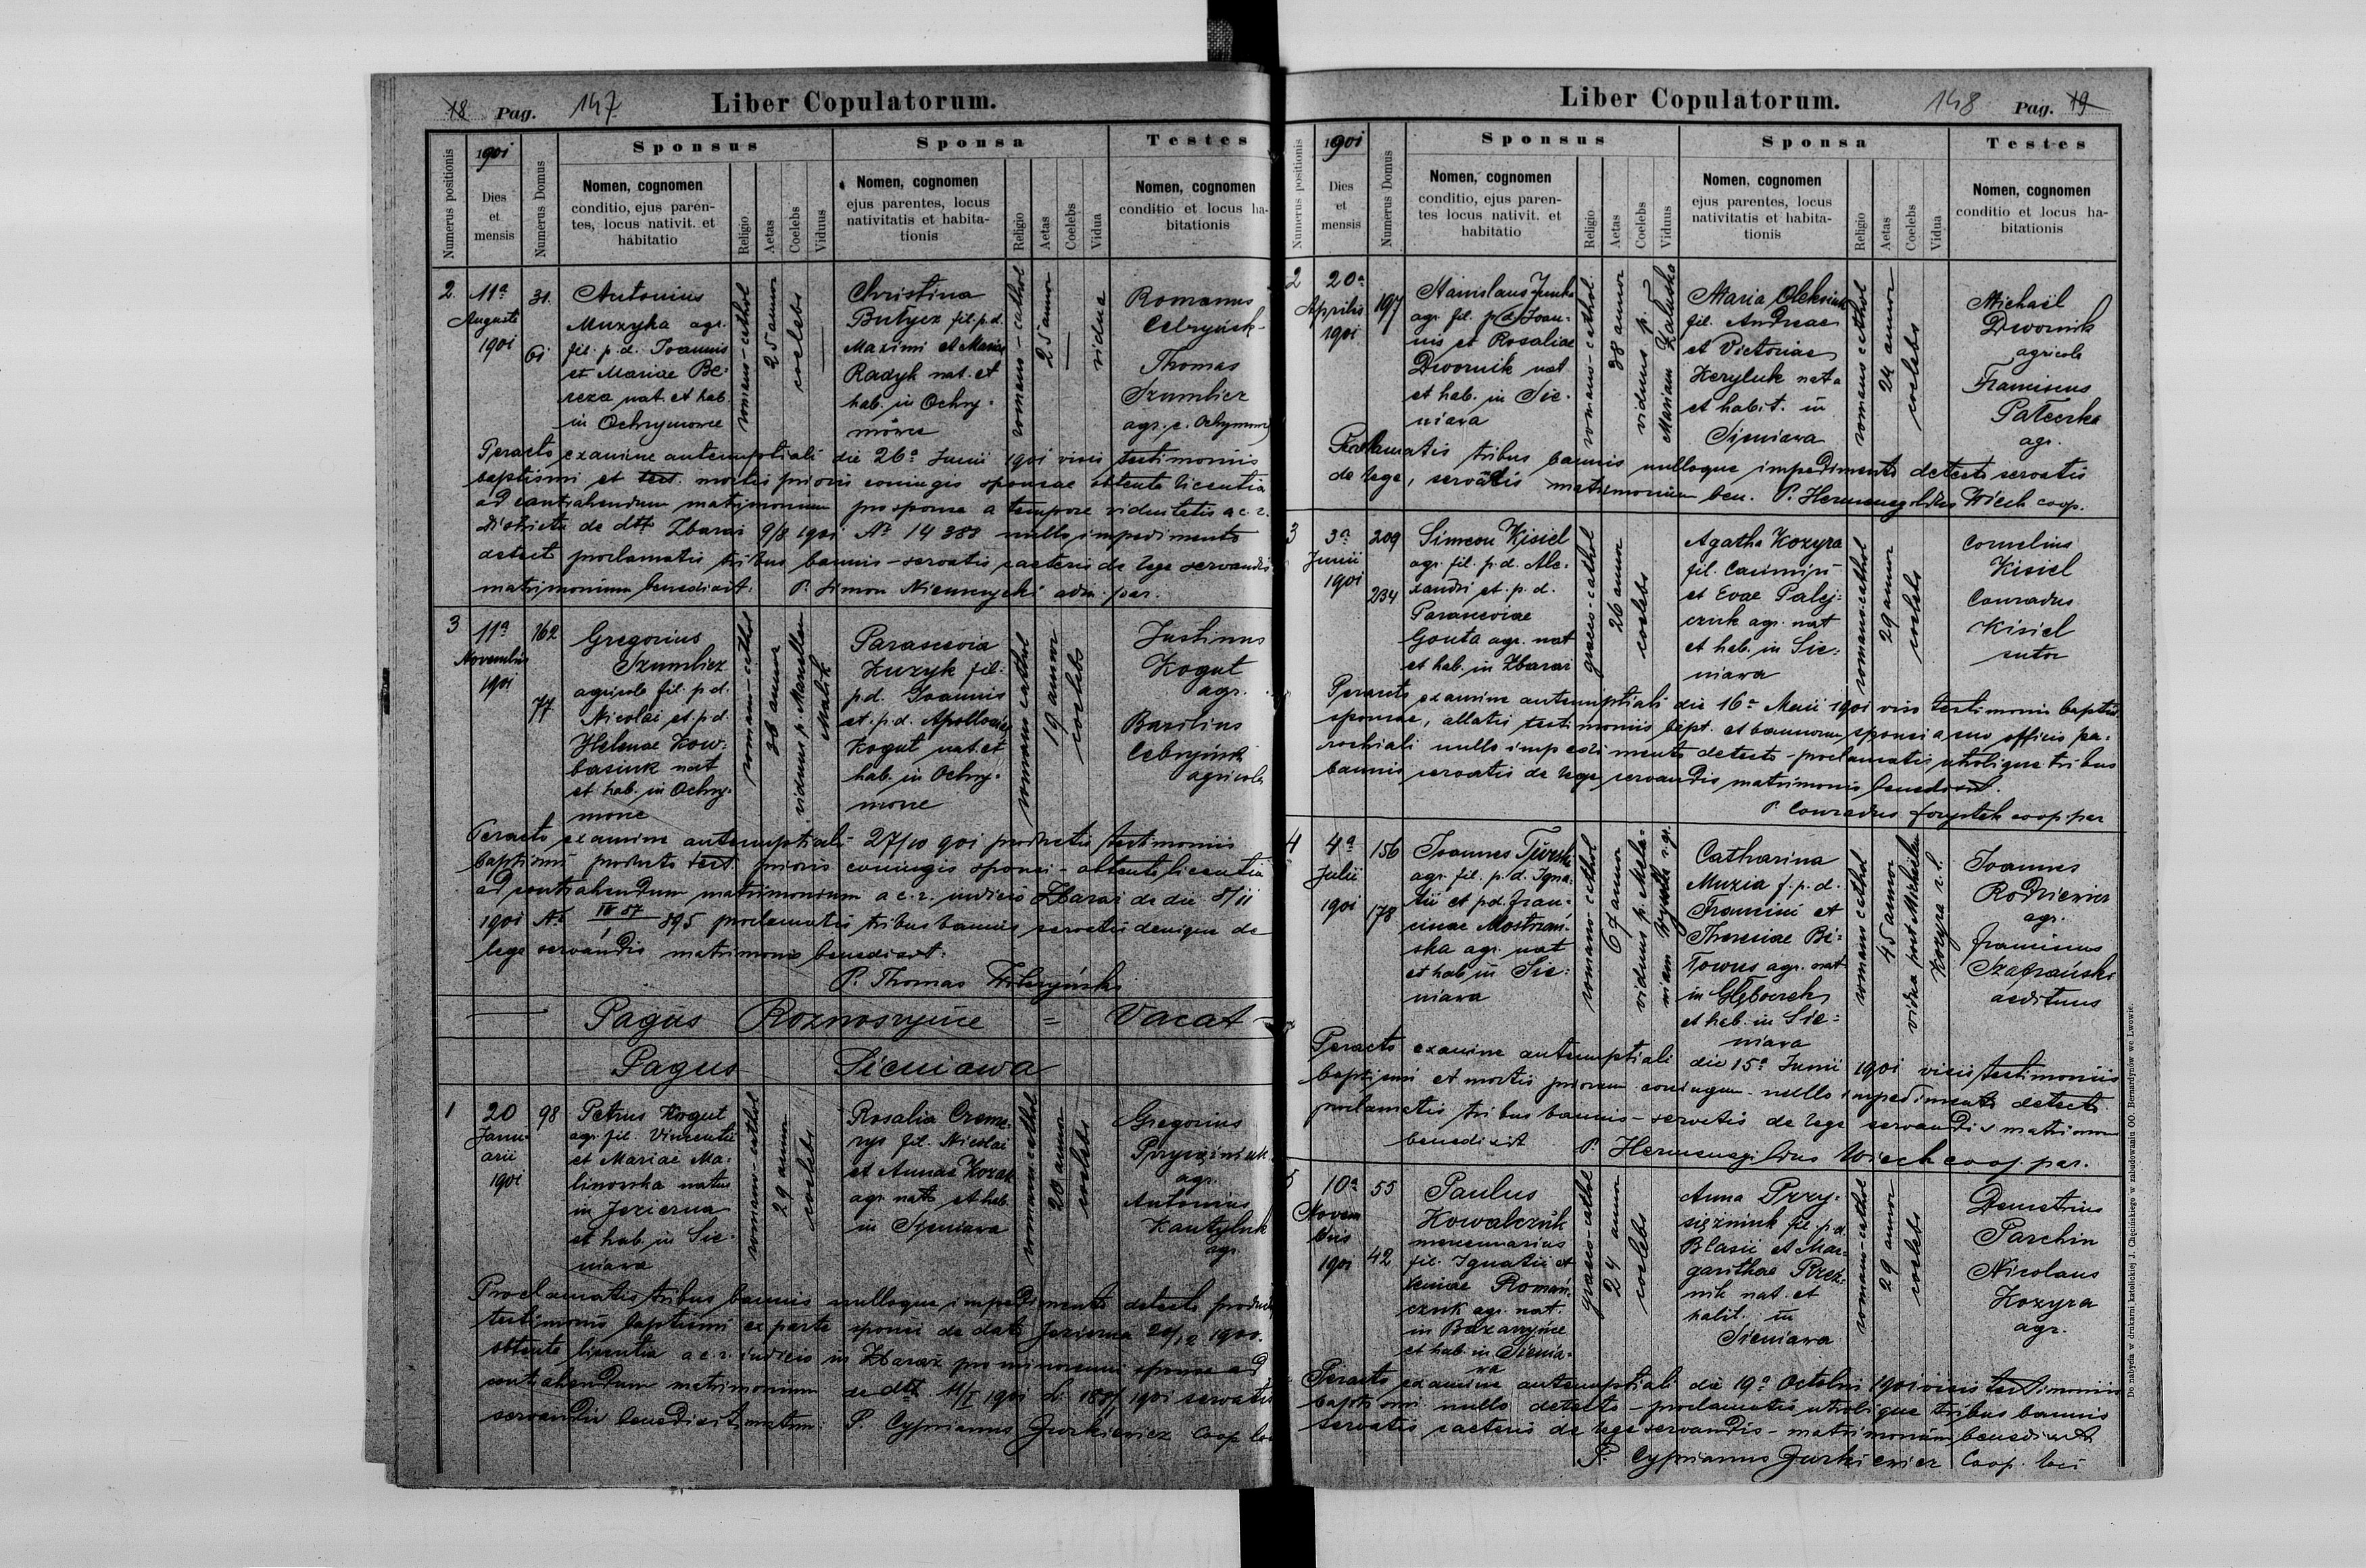 18 Pag. 147 Liber Copulatorum.
Numerus positionis
1901
Dies
et
mensis
Numerus Domus
Sponsus
Nomen, cognomen
conditio, ejus paren-
tes, locus nativit. et
habitatio
Religio
Aetas
Coelebs
Viduus
Sponsa
Nomen, cognomen
ejus parentes, locus
nativitatis et habita-
tionis
Religio
Aetas
Coelebs
Vidua
Testes
Nomen, cognomen
conditio et locus ha-
bitationis
2.
11a
Augusti
1901
31.
61
Antonius
Muzyka agr.
fil. p.d. Joannis
et Mariae Be-
reza nat. et hab.
in Ochrymowce
romano-cathol
25 annor
coelebs
Christina
Butycz fil. p.d.
Maximi et Mariae
Radyk nat. et
hab. in Ochry-
mowce
romano-cathol
25 annor
vidua
Romanus
Cebryńsk
Thomas
Szumlicz
agr.
Peracto examine antenuptiali die 26a Junii 1901 visis testimoniis
baptismi et test. mortis prioris coniugis sponsae obtenta licentia
ad contrahendum matrimonium pro sponsa a tempore viduitatis a c. r.
de dtto Zbaraż 9/8 1901 No 14388 nullo impedimento
detecto proclamatis tribus bannis – servatis caeteris de lege servandis
matrimonium benedixit. P. Simon adm. par.
3
11a
Novembris
1901
162
77
Gregorius
Szumlicz
agricola fil. p.d.
Nicolai et p.d.
Helenae Kow-
basiuk nat
et hab. in Ochry-
mowce
romano-cathol
38 annor
viduus p. Marcellam
Malik
Parascevia
Kuzyk fil.
p.d. Joannis
et p.d. Apolloniae
Kogut nat. et
hab. in Ochry-
mowce
romano cathol
19 annor
coelebs
Justinus
Kogut
agr.
Basilius
Cebryńsk
agricola
Peracto examine antenuptiali 27/10 901 productis testimoniis
baptismi producto test. prioris coniugis sponsi – obtenta licentia
ad contrahendum matrimonium a c. r. iudicio Zbaraż de die 8/11
1901 No 895 proclamatis tribus bannis servatis denique de
lege servandis matrimonio benedixit.
P. Thomas
Pagus Roznoszyńce = Vacat
Pagus Sieniawa
1
20
Janu-
arii
1901
98
Petrus Kogut
agr. fil. Vincentii
et Mariae Ma-
linowska natus
in Jezierna
et hab. in Sie-
niawa
romano-cathol
29 annor
coelebs
Rosalia Creme-
rys fil. Nicolai
et Annae Kozak
agr. nata et hab.
in Sieniawa
romano cathol
20 annor
coelebs
Gregorius
Przysiężniuk
agr.
Antonius
Kantyluk
agr.
Proclamatis tribus bannis nulloque impedimento detecto producto
testimonio baptismi ex parte sponsi de dato Jezierna 20/12 1900.
obtenta licentia a c. r. iudicio in Zbaraż pro minorenni sponsa ad
contrahendum matrimonium de dtto 11/I 1901 servatis
servandis benedixit matrim: P. Cyprianus Jurkiewicz Coop
Liber Copulatorum. 148 Pag. 19
Numerus positionis
1901
Dies
et
mensis
Numerus Domus
Sponsus
Nomen, cognomen
conditio, ejus paren-
tes locus nativit. et
habitatio
Religio
Aetas
Coelebs
Viduus
Sponsa
Nomen, cognomen
ejus parentes, locus
nativitatis et habita-
tionis
Religio
Aetas
Coelebs
Vidua
Testes
Nomen, cognomen
conditio et locus ha-
bitationis
2
20a
Aprilis
1901
197
Stanislaus
agr. fil. p.d. Joan-
nis et Rosaliae
Dwornik nat
et hab. in Sie-
niawa
romano-cathol.
38 annor
viduus p.
Mariam Załuska
Maria Oleksiuk
fil. Andreae
et Victoriae
Keryluk nata
et habit. in
Sieniawa
romano cathol
24 annor
coelebs
Michael
Dwornik
agricola
Franciscus
Pałecka
agr.
Proclamatis tribus bannis nulloque impedimento detecto servatis
de lege, servandis matrimonium ben. P. Hermenegildus Wiech coop.
3
3a
Junii
1901
209
234
Simeon Kisiel
agr. fil. p.d. Ale-
xandri et p.d.
Parasceviae
Gouta agr. nat
et hab. in Zbaraż
graeco-cathol
26 annor
coelebs
Agatha Kozyra
fil. Casimiri
et Evae Palej-
czuk agr. nat
et hab. in Sie-
niawa
romano cathol
29 annor
coelebs
Cornelius
Kisiel
Conradus
Kisiel
sutor
Peracto examine antenuptiali die 16a Maii 1901 viso testimonio baptis
sponsae, allatis testimoniis bapt. et bannorum sponsi a suo officio pa-
rochiali nullo impedimento detecto – proclamatis utrobique tribus
bannis servatis de lege servandis matrimonio benedixit.
P. Conradus coop. par
4
4a
Julii
1901
156
178
Joannes
agr. fil. p.d. Igna-
tii et p.d. Fran-
ciscae
ska agr. nat
et hab. in Sie-
niawa
romano cathol
67 annor
viduus p. Mela-
niam
Catharina
Muzia f. p.d.
Francisci et
Theresiae Bi-
Towus agr. nat
in Głęboczek
et hab. in Sie-
niawa
romano cathol
45 annor
vidua post Michaelem
Kozyra r. l.
Joannes
Rodziewicz
agr.
Franciscus
Szafrański
aedituus
Peracto examine antenuptiali die 15a Junii 1901 visis testimoniis
baptismi et mortis priorum coniugum nullo impedimento detecto
proclamatis tribus bannis – servatis de lege servandis matrimonium
benedixit P. Hermenegildus Wiech coop. par.
5
10a
Novem
bris
1901
55
42
Paulus
Kowalczuk
mercenarius
fil. Ignatii et
Xeniae Roman-
czuk agr. nat.
in Bazaryńce
et hab. in Sienia-
wa
graeco-cathol
24 annor
coelebs
Anna Przy-
siężniuk fil. p.d.
Blasii et Mar-
garithae
nik nat. et
habit. in
Sieniawa
romano-cathol
29 annor
coelebs
Demetrius
Parchin
Nicolaus
Kozyra
agr.
Peracto examine antenuptiali die 19a Octobris 1901 visis testimoniis
baptismi nullo detecto – proclamatis utrobique tribus bannis
servatis caeteris de lege servandis – matrimonium benedixit
P. Cyprianus Jurkiewicz Coop. loci
Do nabycia w drukarni katolickiej J. Chęcińskiego w zabudowaniu OO. Bernardynów we Lwowie.